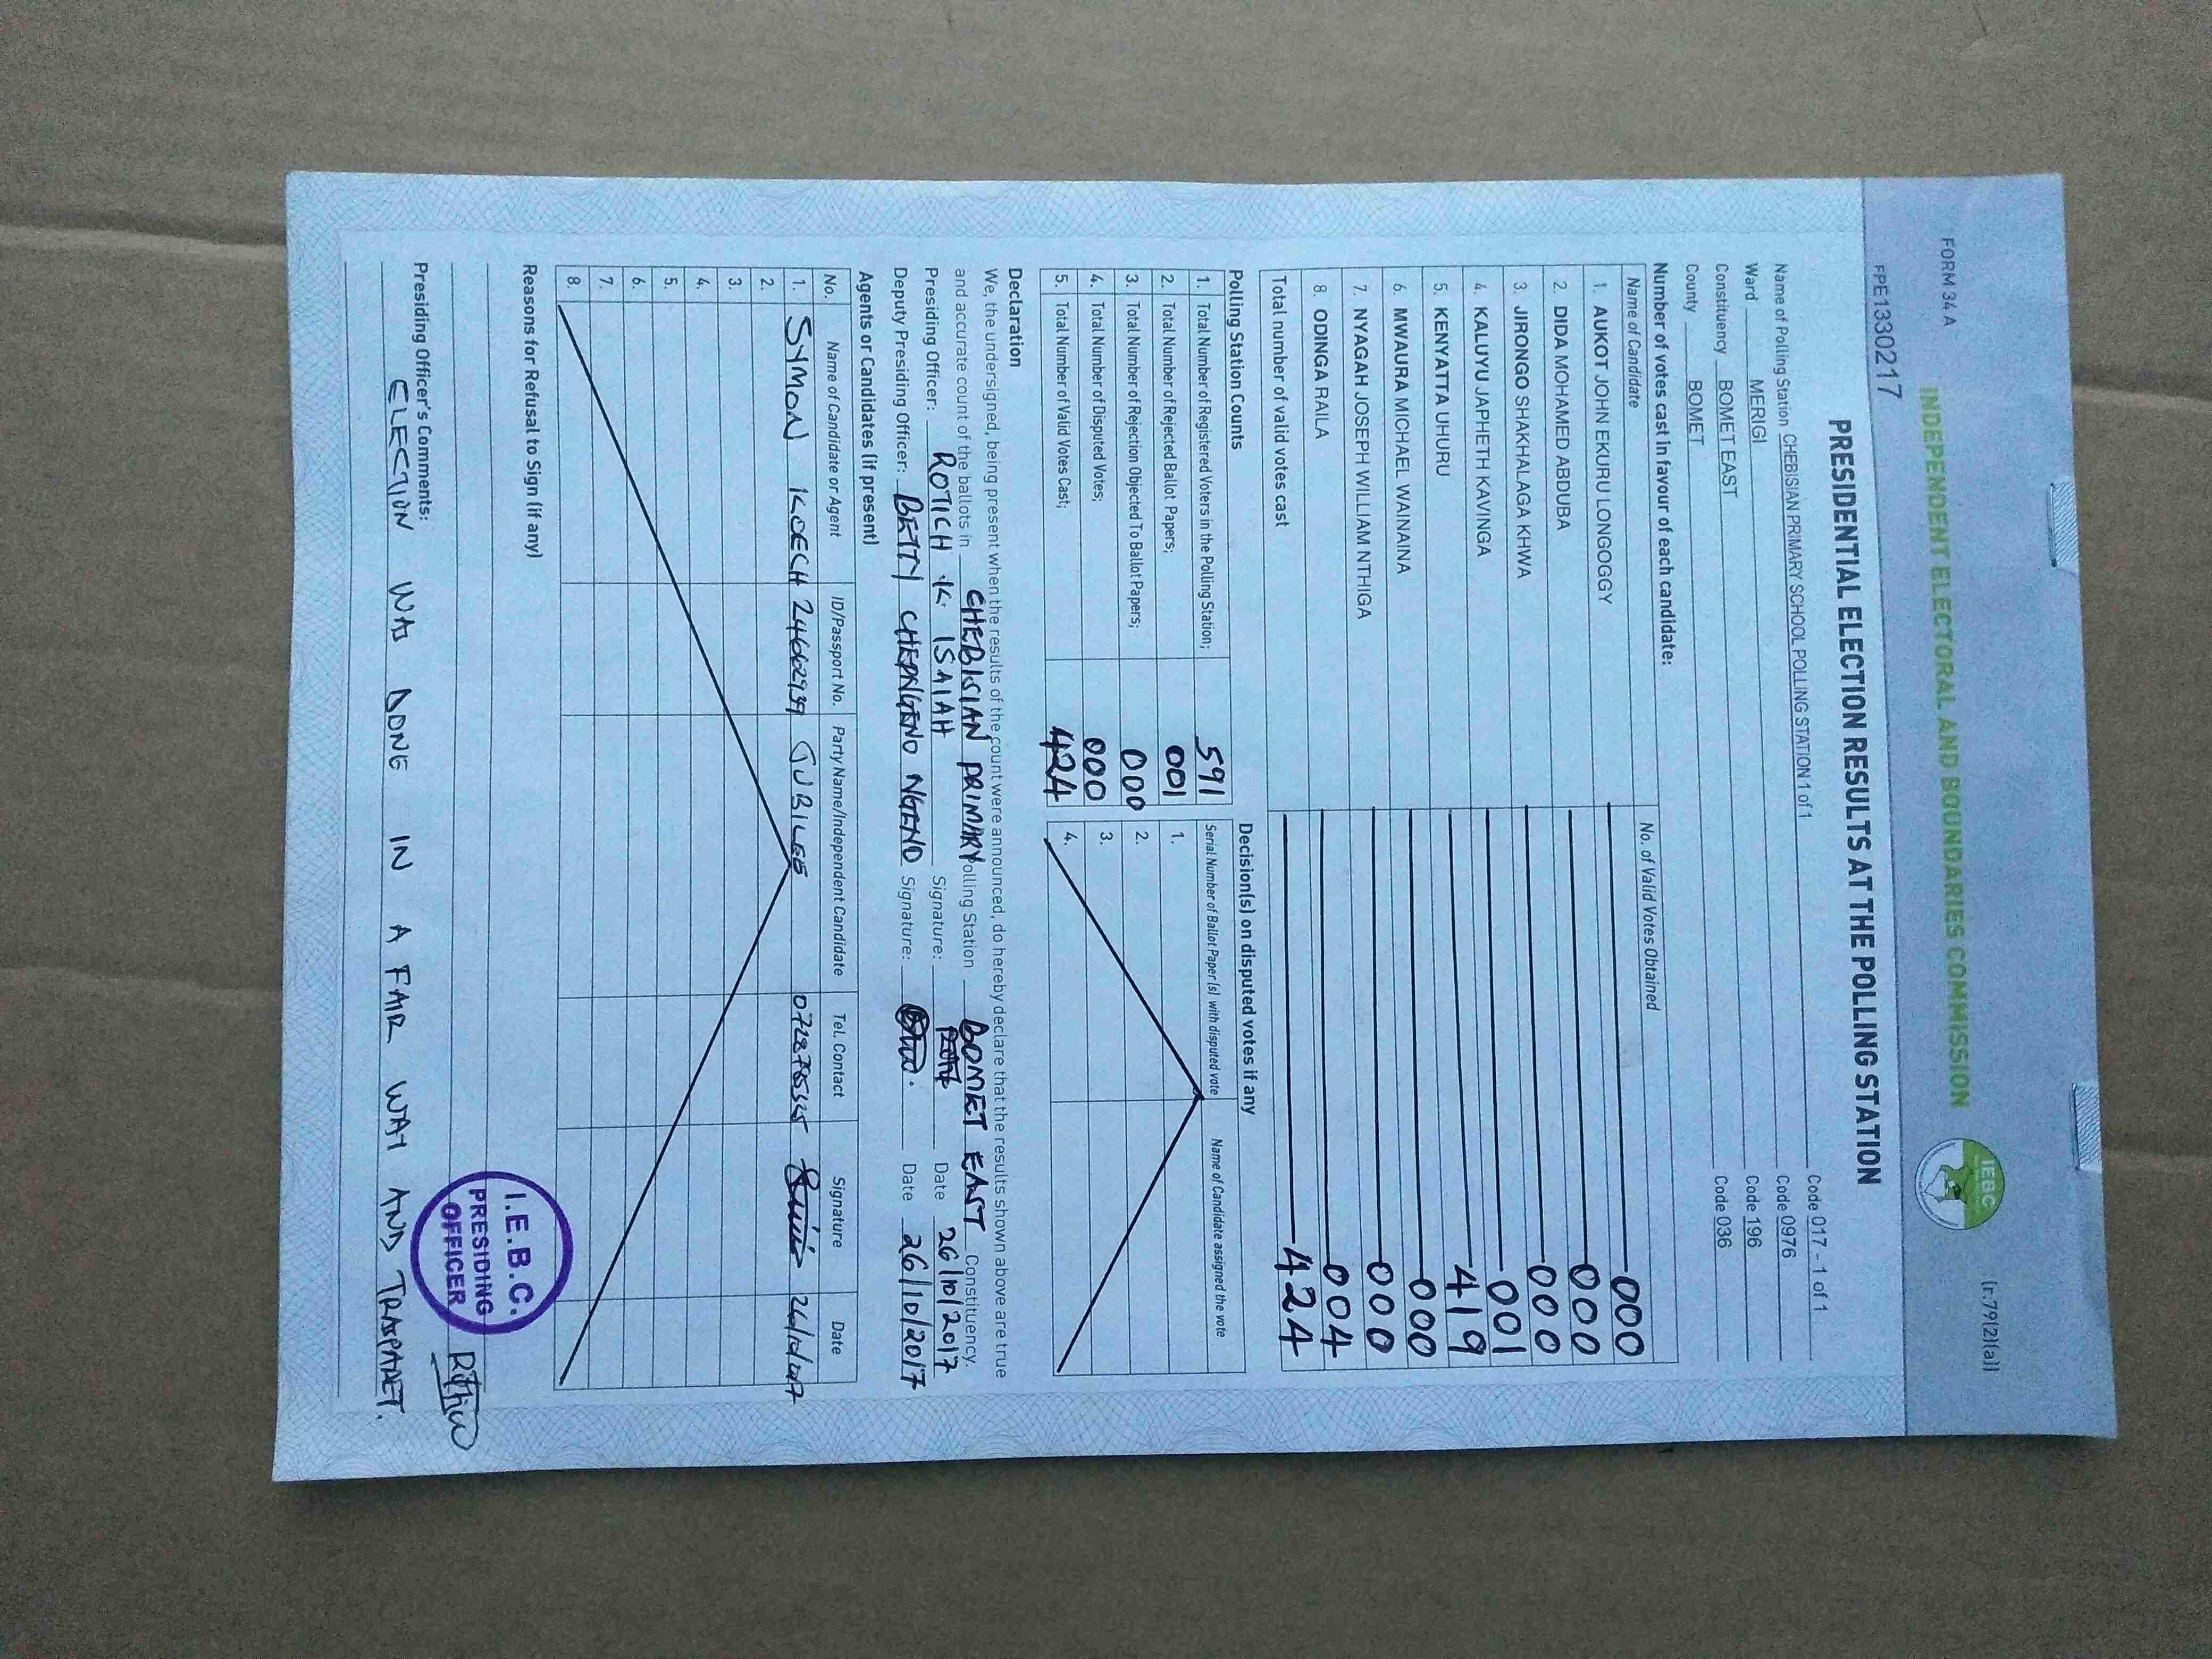 FORM 34 A
(r.79(2)(a))
INDEPENDENT ELECTORAL AND BOUNDARIES COMMISSION
IEBC
FPE1330217
PRESIDENTIAL ELECTION RESULTS AT THE POLLING STATION
Name of Polling Station CHEBISIAN PRIMARY SCHOOL POLLING STATION 1 of 1 Code 017 - 1 of 1
Code 0976
Ward MERIGI Code 196
Constituency BOMET EAST Code 036
County BOMET
Number of votes cast in favour of each candidate:
Name of Candidate No. of Valid Votes Obtained
1. AUKOT JOHN EKURU LONGOGGY 000
2. DIDA MOHAMED ABDUBA 000
3. JIRONGO SHAKHALAGA KHWA 000
4. KALUYU JAPHETH KAVINGA 001
5. KENYATTA UHURU 419
6. MWAURA MICHAEL WAINAINA 000
7. NYAGAH JOSEPH WILLIAM NTHIGA 000
8. ODINGA RAILA 004
Total number of valid votes cast 424
Polling Station Counts
1. Total Number of Registered Voters in the Polling Station; 591
2. Total Number of Rejected Ballot Papers; 001
3. Total Number of Rejection Objected To Ballot Papers; 000
4. Total Number of Disputed Votes; 000
5. Total Number of Valid Votes Cast; 424
Decision(s) on disputed votes if any
Serial Number of Ballot Paper (s) with disputed vote Name of Candidate assigned the vote
1.
2.
3.
4.
Declaration
We, the undersigned, being present when the results of the count were announced, do hereby declare that the results shown above are true
and accurate count of the ballots in CHEBISIAN PRIMARY olling Station BOMET EAST Constituency.
Presiding Officer: ROTICH .K. ISAIAH Signature: Date 26/10/2017
Deputy Presiding Officer: BETTY CHEPNGENO NGENO Signature: Date 26/10/2017
Agents or Candidates (if present)
No. Name of Candidate or Agent ID/Passport No. Party Name/Independent Candidate Tel. Contact Signature Date
1. SYMON KOECH 24662939 JUBILEE 26/10/2017
2.
3.
4.
5.
6.
7.
8.
Reasons for Refusal to Sign (if any)
I.E.B.C.
PRESIDING
OFFICER
Presiding Officer's Comments:
ELECTION WAS DONE IN A FAIR WAY AND